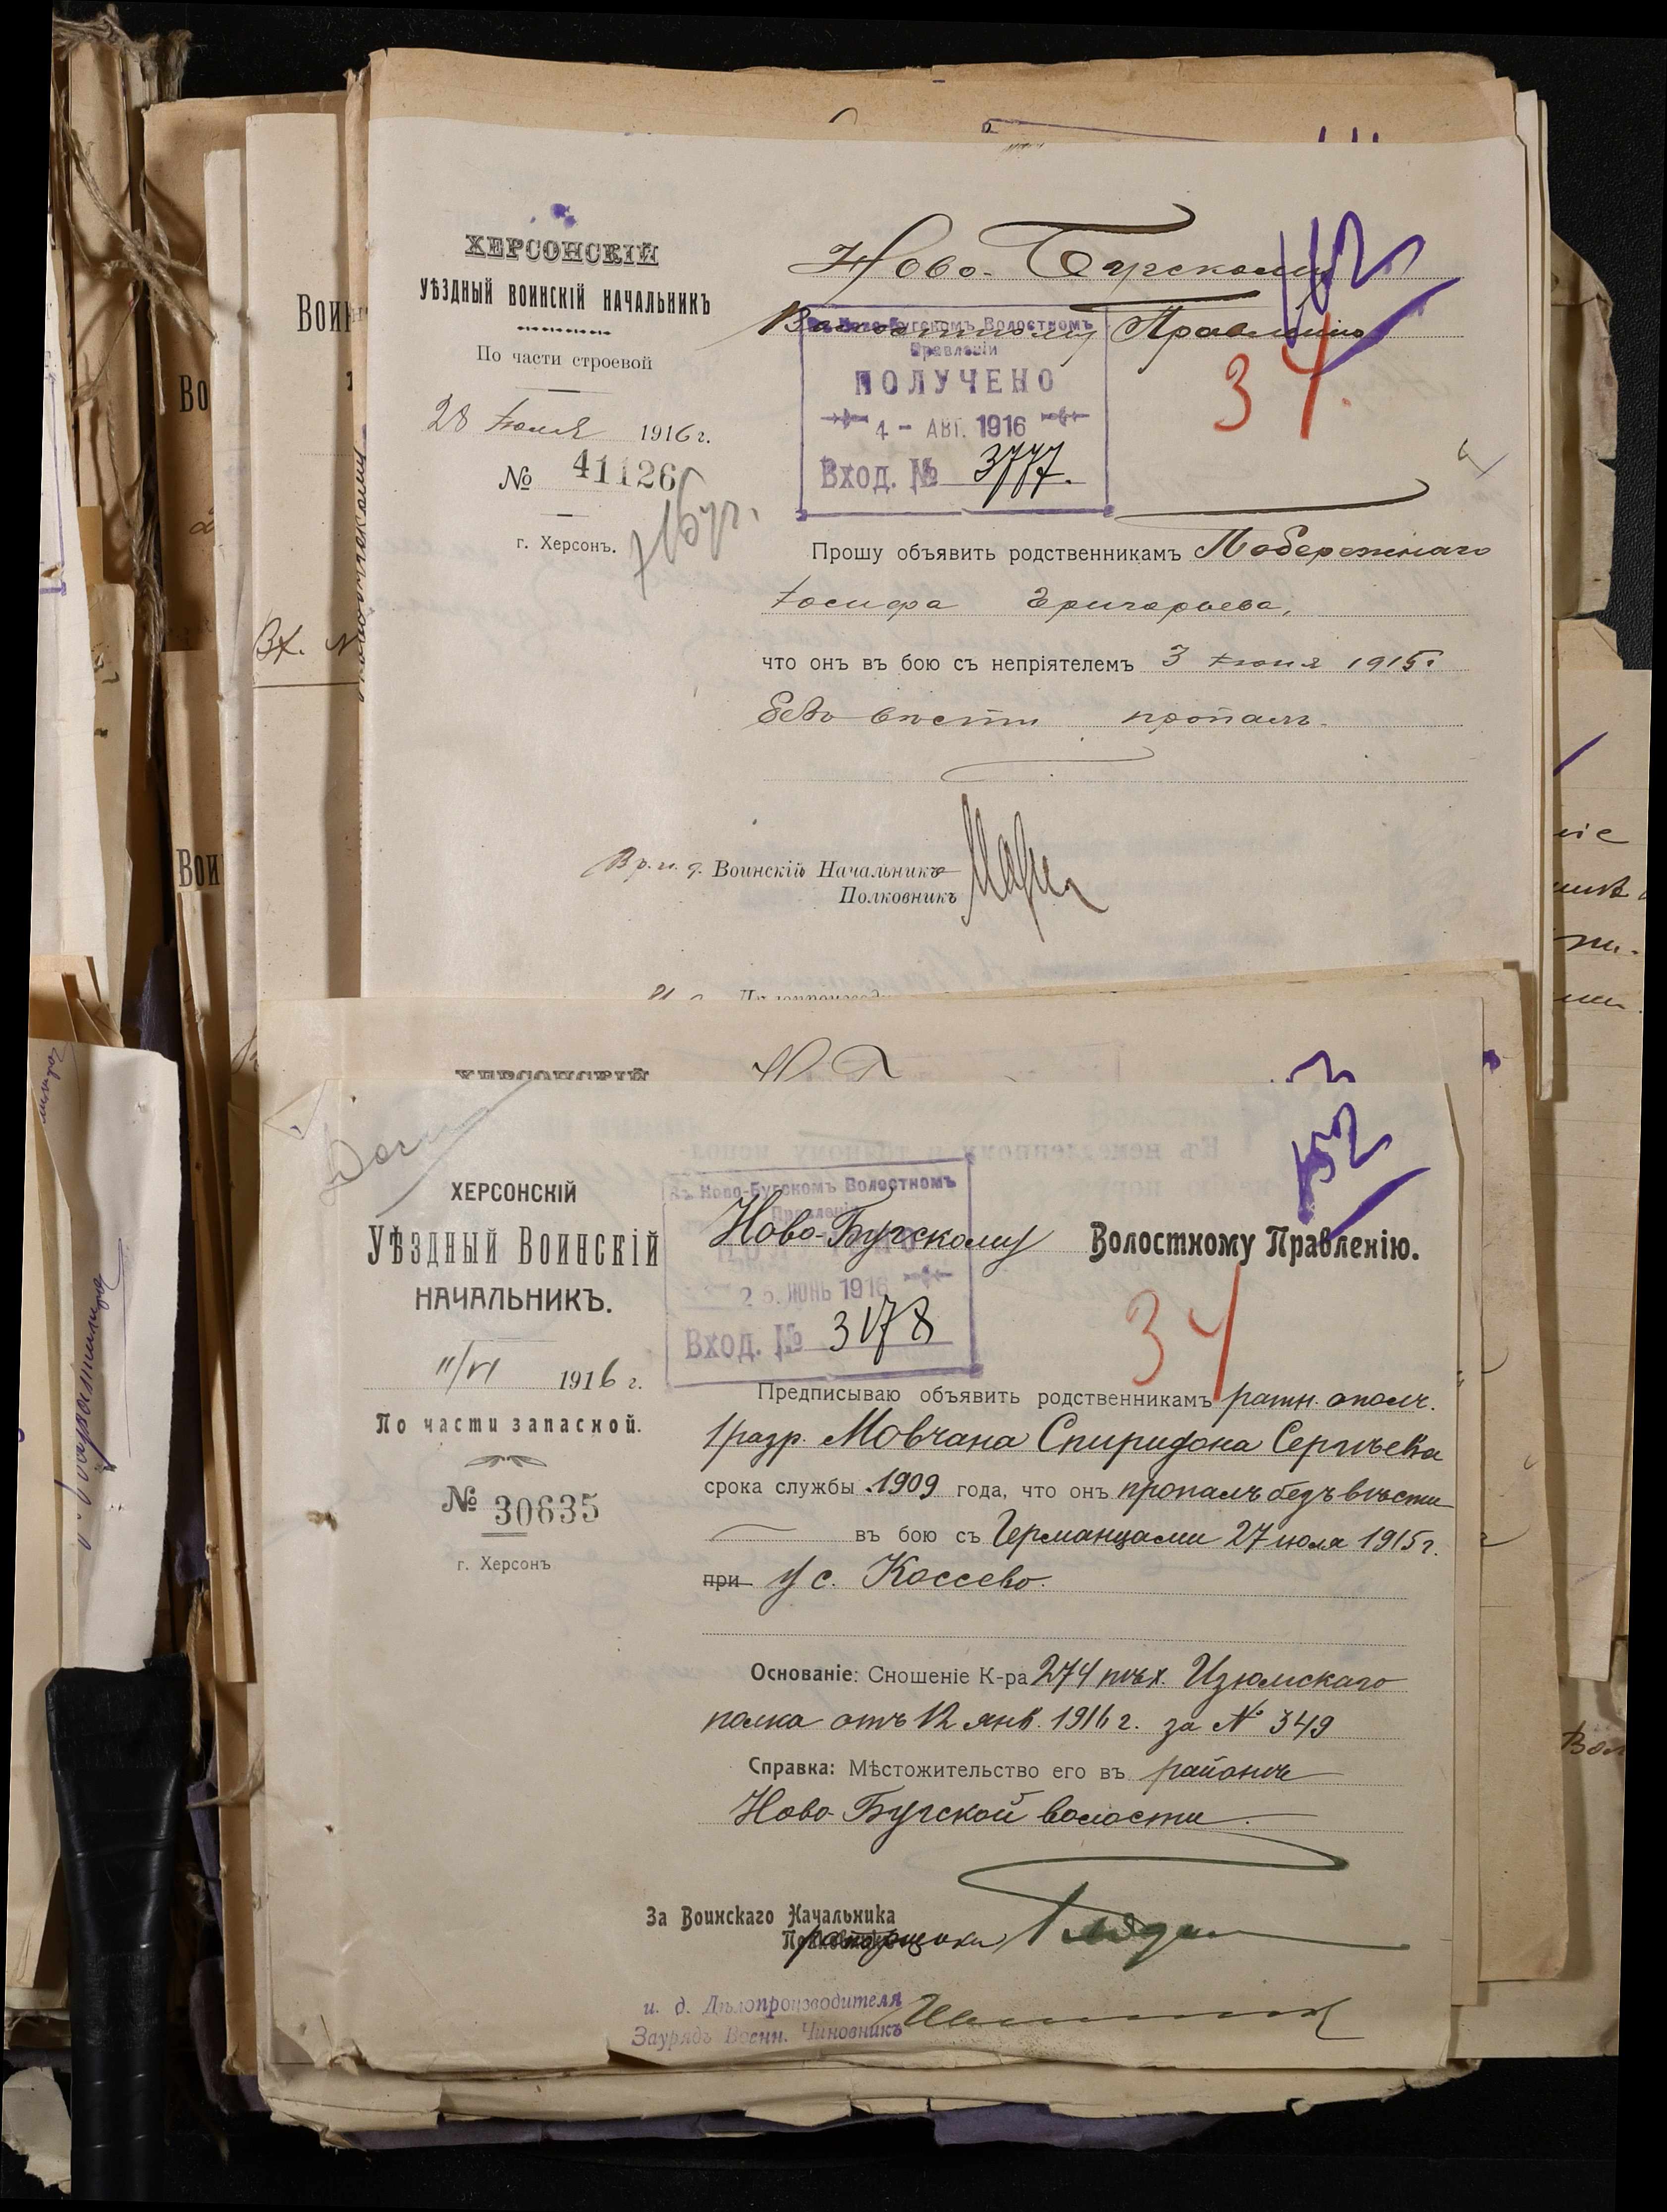 ХЕРСОНСКІЙ
УѢЗДНЫЙ ВОИНСКІЙ НАЧАЛЬНИКЪ
По части строевой
28 Іюля 1916 г.
№ 41126
г. Херсонъ.
Ново-Бугскому
Волостному Правленію
Въ Ново-Бугскомъ Волостномъ
Правленіи
ПОЛУЧЕНО
4 - АВГ. 1916
Вход. № 3777.
162
34.
Прошу объявить родственникамъ Побережнаго
Іосифа Григорьева,
что онъ въ бою съ непріятелемъ 3 Іюня 1915г
безъ вѣсти пропалъ.
Вр. и. д. Воинскій Начальникъ
Полковникъ
ХЕРСОНСКІЙ
ХЕРСОНСКІЙ
УѢЗДНЫЙ ВОИНСКІЙ
НАЧАЛЬНИКЪ.
11/VI 1916 г.
По части запасной.
№ 30635
г. Херсонъ
Въ Ново-Бугскомъ Волостномъ
Правленіи
ИЮНЬ 1916
Вход. № 3178
Ново-Бугскому Волостному Правленію.
152
34
Предписываю объявить родственникамъ ратн. ополч.
1 разр. Мовчана Спиридона Сергѣева
срока службы 1909 года, что онъ пропалъ безъ вѣсти
въ бою съ Германцами 27 июля 1915 г.
при у с. Коссево.
Основаніе: Сношеніе К-ра 274 пѣх. Изюмскаго
полка отъ 12 янв. 1916 г. за № 349
Справка: Мѣстожительство его въ районѣ
Ново-Бугской волости.
За Воинскаго Начальника
и. д. Дѣлопроизводителя
Зауряд. Военн. Чиновникъ
Вои
Во
Вои
Вх. №